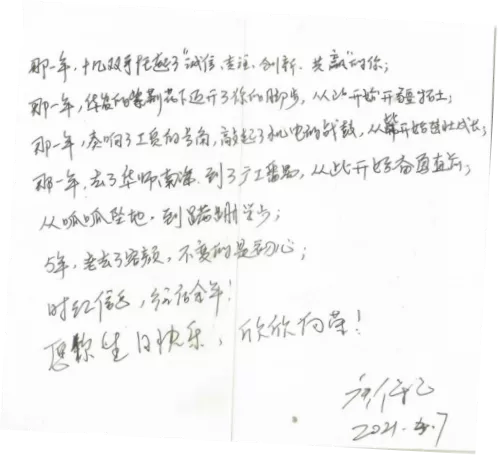 那一年，十几双手托起了“诚信、专注、创新、共赢”的你；
那一年，华农的紫荆花下迈开了你的脚步，从此开始开疆拓土；
那一年，奏响了工贸的号角，敲起了机电的战鼓，从此开始茁壮成长；
那一年，去了华师南海，到了广工番禺，从此开始奋勇直前；
从呱呱坠地，到蹒跚学步；
5年，老去了容颜，不变的是初心；
时红信
余年！
生日快乐，欣欣向荣！
2021.4.7